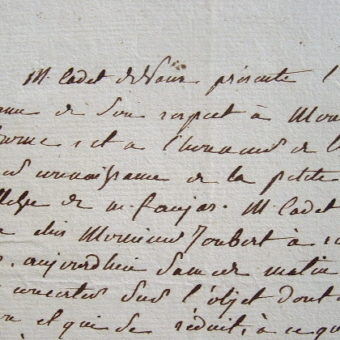 M. Cadet de Vaux présente l'
de son respect à Mon
et a l'honneur de l
connaissance de la petite
de m. faujas. M. Cadet
Monsieur Joubert à
aujourdhui Samedi matin
concerter sur l'objet dont
et qui se réduit, à ce qu